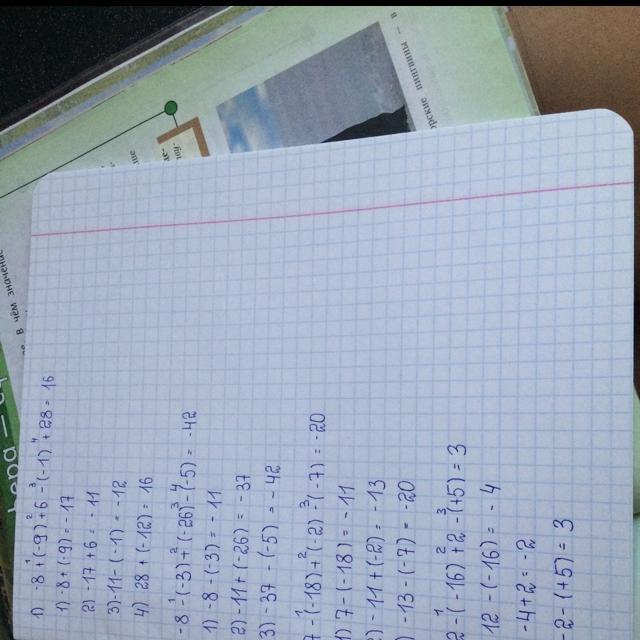 1) -8 + (-9) + 6 - (-1) + 28 = 16
1) -8 + (-9) = -17
2) -17 + 6 = -11
3) -11 - (-1) = -12
4) 28 + (-12) = 16
-8 - (-3) + (-26) - (-5) = -42
1) -8 - (3) = -11
2) -11 + (-26) = -37
3) -37 - (-5) = -42
7 - (-18) + (-2) - (-7) = -20
1) 7 - (-18) = -11
) -11 + (-2) = -13
) -13 - (-7) = -20
2 - (-16) + 2 - (+5) = 3
12 - (-16) = -4
-4 + 2 = -2
2 - (+5) = 3
в чём значение
пингвины — в